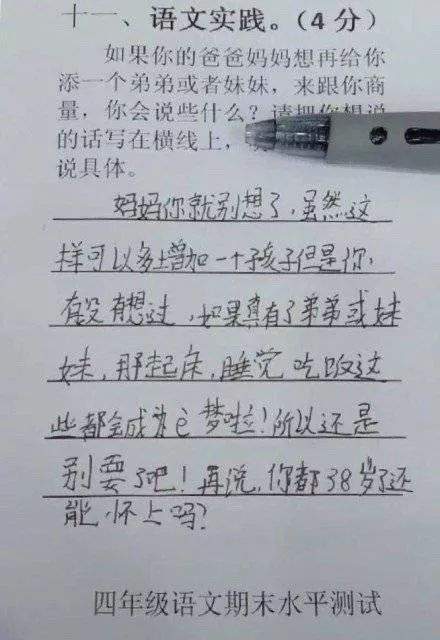 十一、语文实践。（4分）
如果你的爸爸妈妈想再给你
添一个弟弟或者妹妹，来跟你商
量，你会说些什么？请把你想说
的话写在横线上，
说具体。
妈妈你就别想了，虽然这
样可以多增加一个孩子但是你，
有没有想过，如果真有了弟弟或妹
妹，那起床，睡觉吃饭这
些都会成为梦啦！所以还是
别要了吧！再说，你都38岁了还
能怀上吗？
四年级语文期末水平测试